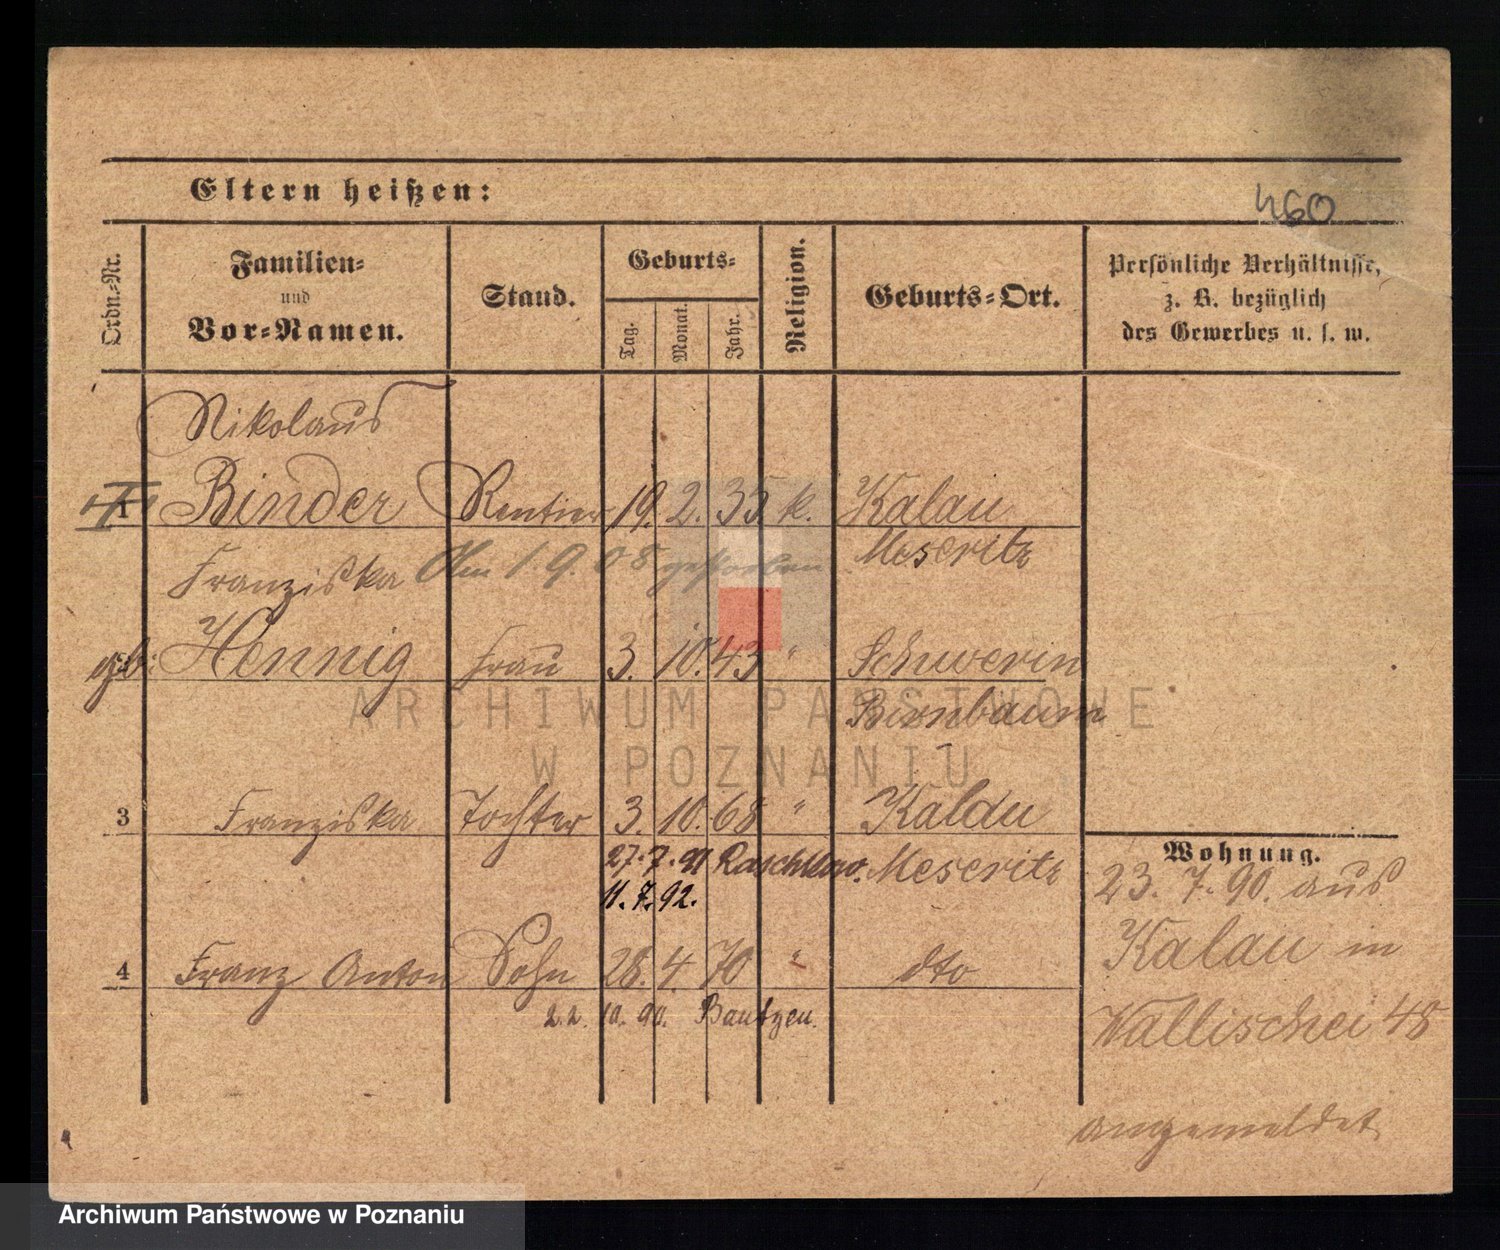 Eltern heißen:
460
Ordn.-Nr.
Familien-
und
Vor-Namen.
Stand.
Geburts-
Tag.
Monat.
Jahr.
Religion.
Geburts-Ort.
Persönliche Verhältnisse,
z. B. bezüglich
des Gewerbes u. s. w.
Nikolaus
1 Binder Rentier 19. 2. 35 k. Kalau
Meseritz
Franziska Am 1. 9. 08 gestorben
geb: Hennig Frau 3. 10. 43 " Schwerin
Birnbaum
3 Franziska Tochter 3. 10. 68 " Kalau
27. 7. 91 Raschkow. Meseritz
11. 7. 92.
4 Franz Anton Sohn 28. 4. 70 " dto
22. 10. 90. Bautzen.
Wohnung.
23. 7. 90. aus
Kalau in
Wallischei 48
angemeldet
ARCHIWUM PAŃSTWOWE
W POZNANIU
Archiwum Państwowe w Poznaniu